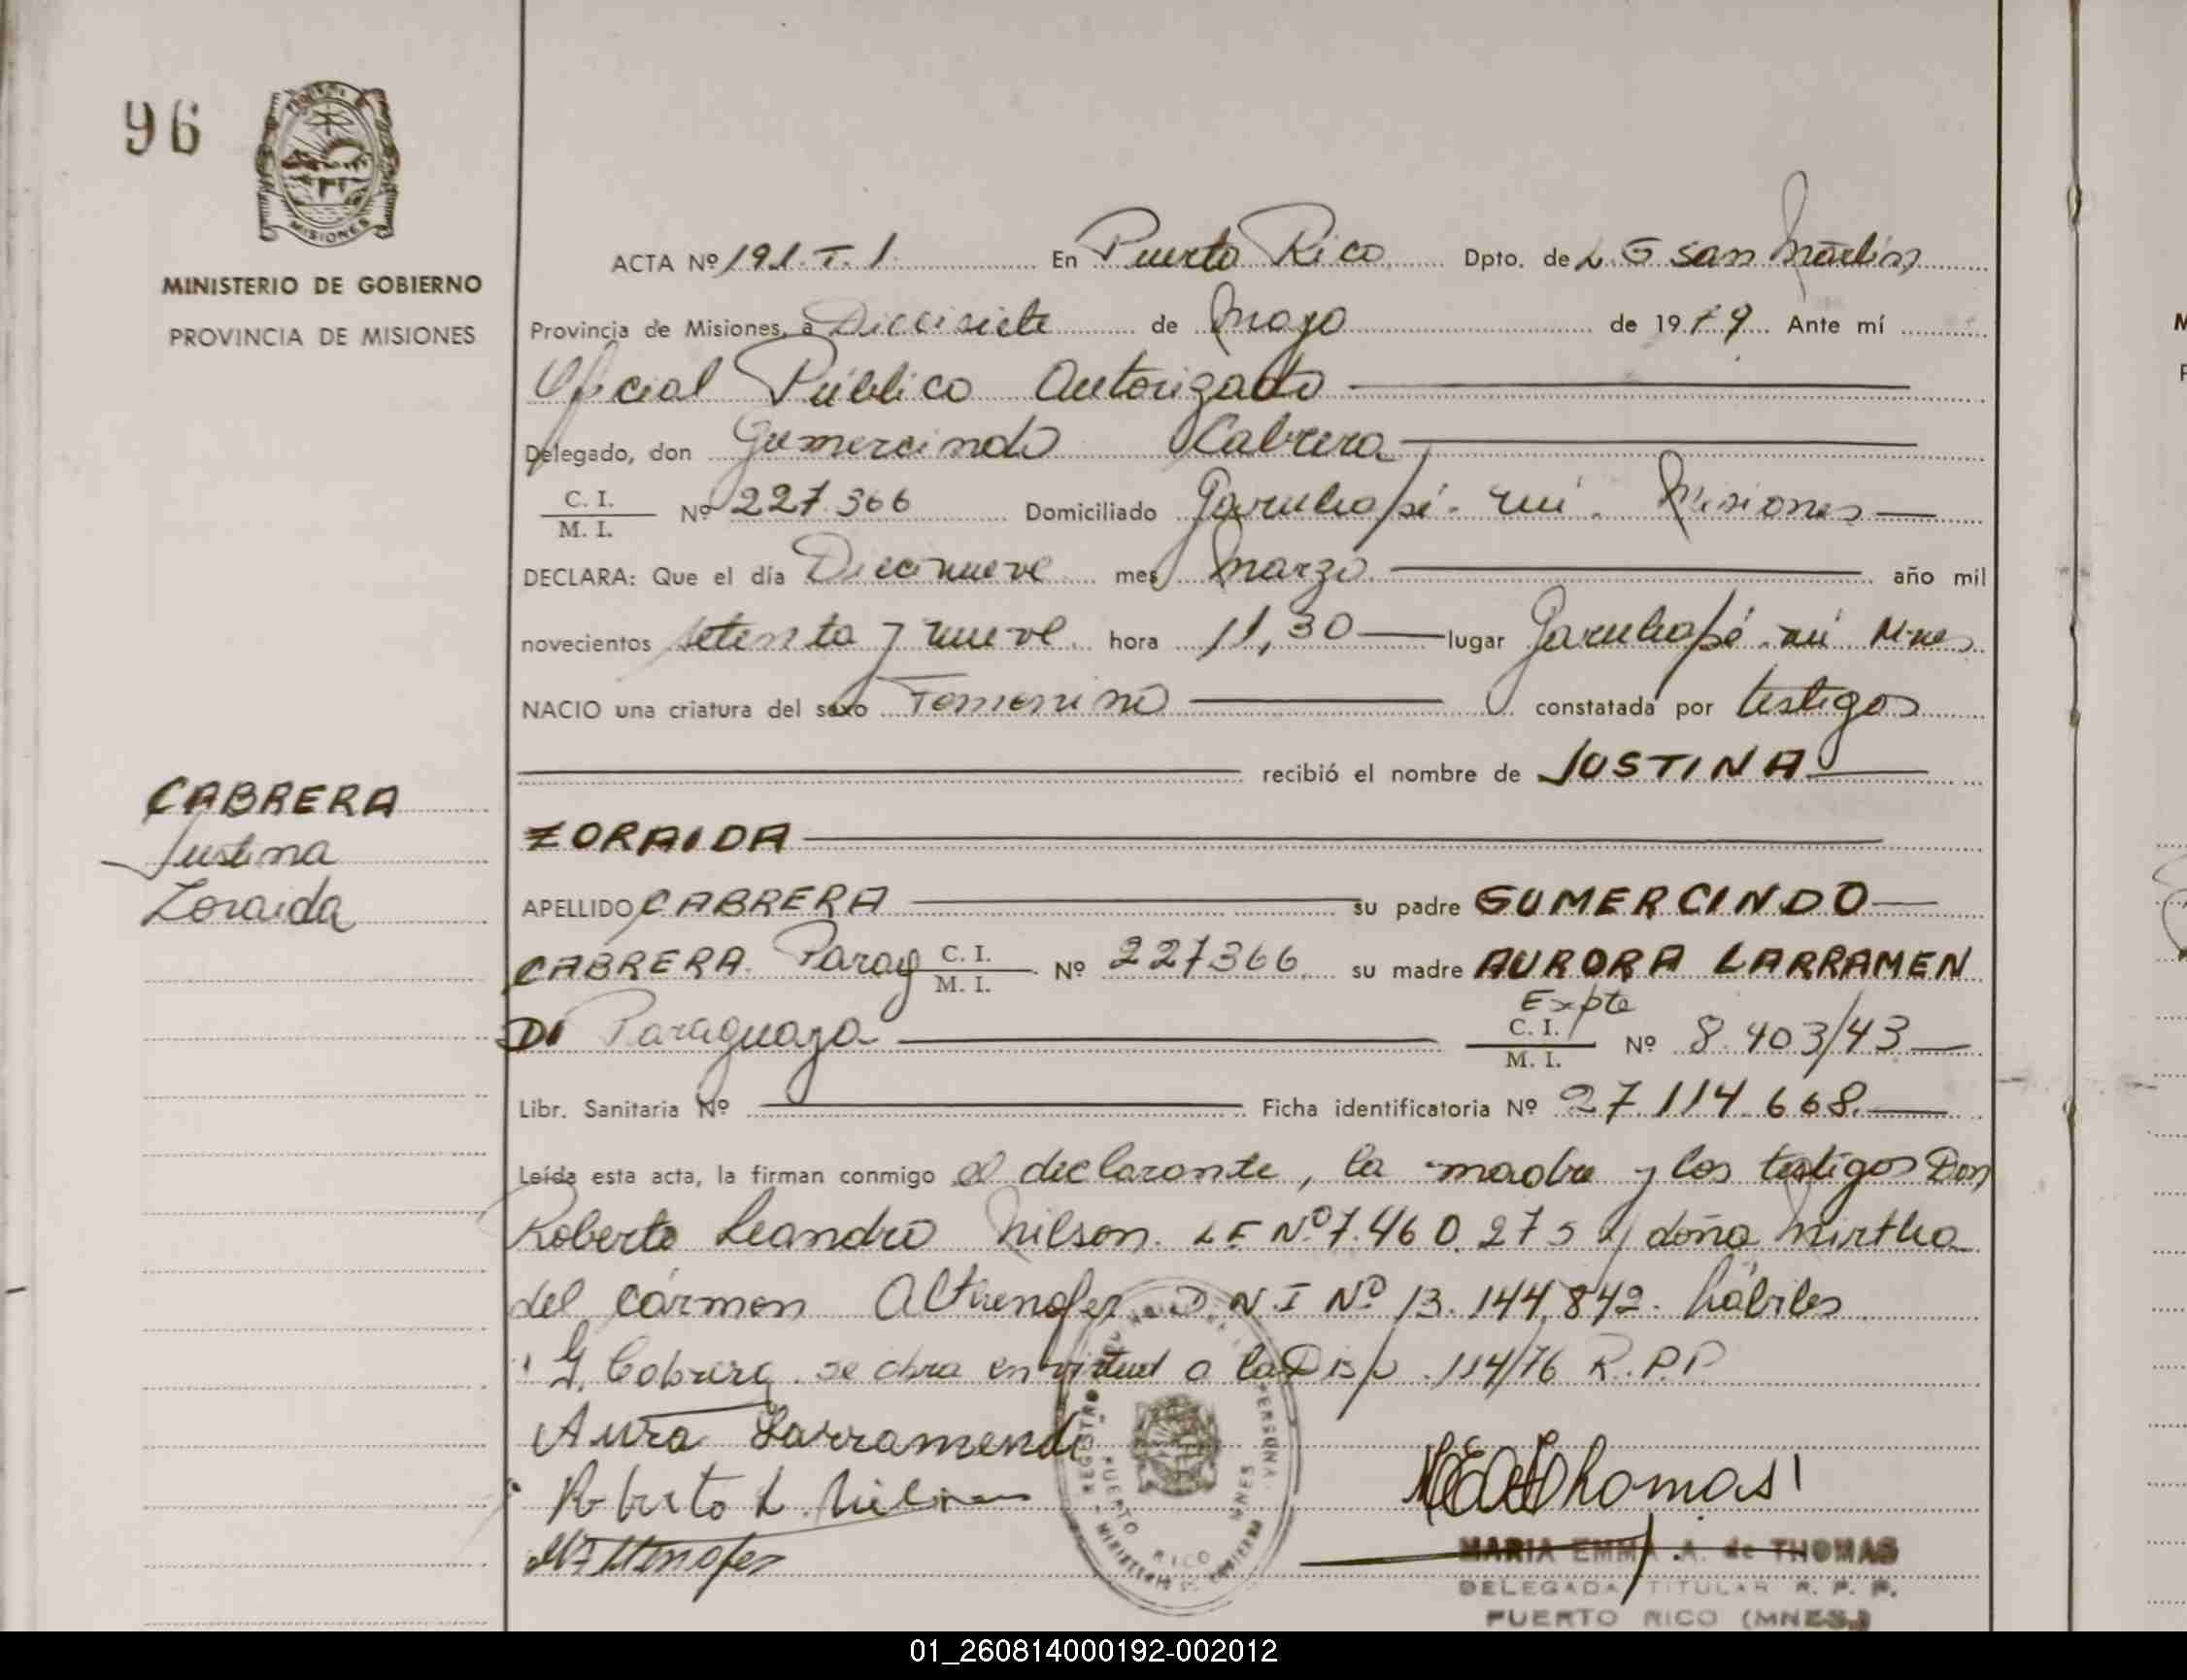 96
MISIONES
MINISTERIO DE GOBIERNO
PROVINCIA DE MISIONES
ACTA Nº 191.T.1. En Puerto Rico Dpto. de L G San Martín
Provincia de Misiones, a Diecisiete de Mayo de 1979. Ante mí
Oficial Público Autorizado
Delegado, don Gumercindo Cabrera
C. I.
M. I. Nº 227.366 Domiciliado Garuhapé-mí. Misiones
DECLARA: Que el día Diecinueve mes Marzo año mil
novecientos setenta y nueve hora 11,30 lugar Garuhapé-mí Mnes
NACIO una criatura del sexo Femenino constatada por testigos
recibió el nombre de JUSTINA
CABRERA
Justina
Zoraida
ZORAIDA
APELLIDO CABRERA su padre GUMERCINDO
CABRERA. Parag C. I.
M. I. Nº 227366 su madre AURORA LARRAMEN
DI Paraguaya Expte C. I.
M. I. Nº 8.403/43
Libr. Sanitaria Nº Ficha identificatoria Nº 27.114.668.
Leída esta acta, la firman conmigo el declarante, la madre y los testigos Don
Roberto Leandro Nilson. LE Nº 7.460.275 y doña Mirtha
del Cármen Althenofer D N I Nº 13.144.842. hábiles
G. Cabrera. se obra en virtud a la Disp. 114/76 R.P.P.
Aura Larramendi
Roberto L. Nilson
REGISTRO
PUERTO RICO MNES
MINISTERIO DE GOBIERNO
MARIA EMMA A. de THOMAS
DELEGADA TITULAR R. P. P.
PUERTO RICO (MNES.)
01_260814000192-002012